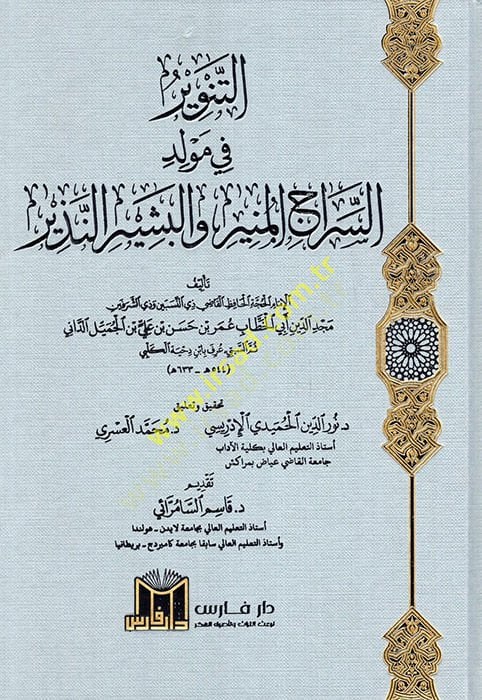 التَّنْوِيرُ
فِي مَوْلِدِ
السِّرَاجِ المُنِيرِ وَالبَشِيرِ النَّذِيرِ
تَأليفُ
الإمَامِ الحُجَّةِ الحَافِظِ القَاضِي ذِي النَّسَبَيْنِ وَذِي الشَّرَفَيْنِ
مَجْدِ الدِّينِ أَبِي الخَطَّابِ عُمَرَ بْنِ حَسَنِ بْنِ عَلِيِّ بْنِ الجُمَيِّلِ الدَّانِي
ثُمَّ السَّبْتِي، عُرِفَ بِابْنِ دِحْيَةَ الكَلْبِي
(٥٤٤هـ - ٦٣٣هـ)
تحقيق وتعليق
د. نُورُ الدِّينِ الحُمَيدِي الإِدْرِيسِي د. مُحَمَّد العَسْرِي
أستاذ التعليم العالي بكلية الآداب
جامعة القاضي عياض بمراكش
تَقْدِيم
د. قَاسِم السَّامَرَّائِي
أستاذ التعليم العالي بجامعة لايدن - هولندا
وأستاذ التعليم العالي سابقا بجامعة كامبردج - بريطانيا
دار فارس
دار فارس